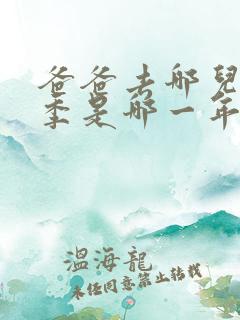 爸爸去哪兒
季是哪一年
溫海龍
未经同意禁止转载